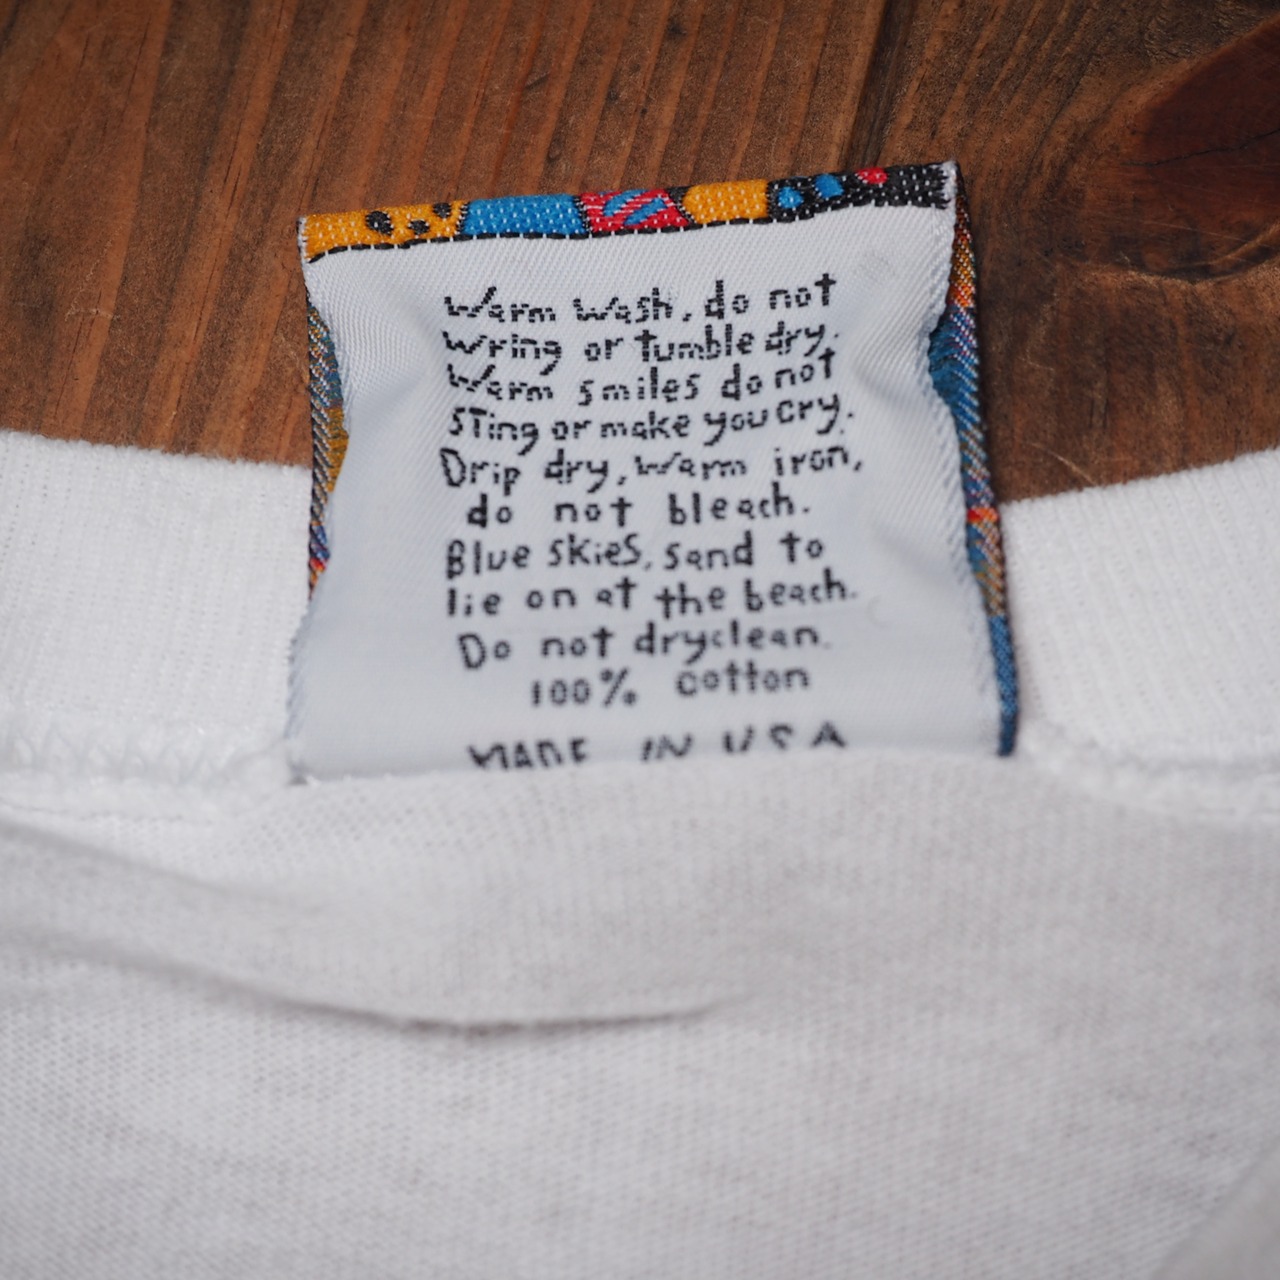 Warm wash, do not
wring or tumble dry.
Warm smiles do not
sting or make you cry.
Drip dry, warm iron,
do not bleach.
Blue skies, sand to
lie on at the beach.
Do not dryclean.
100% cotton
MADE IN USA